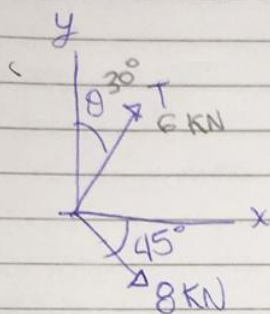 y
θ 30° T
6 KN
x
45°
8 KN